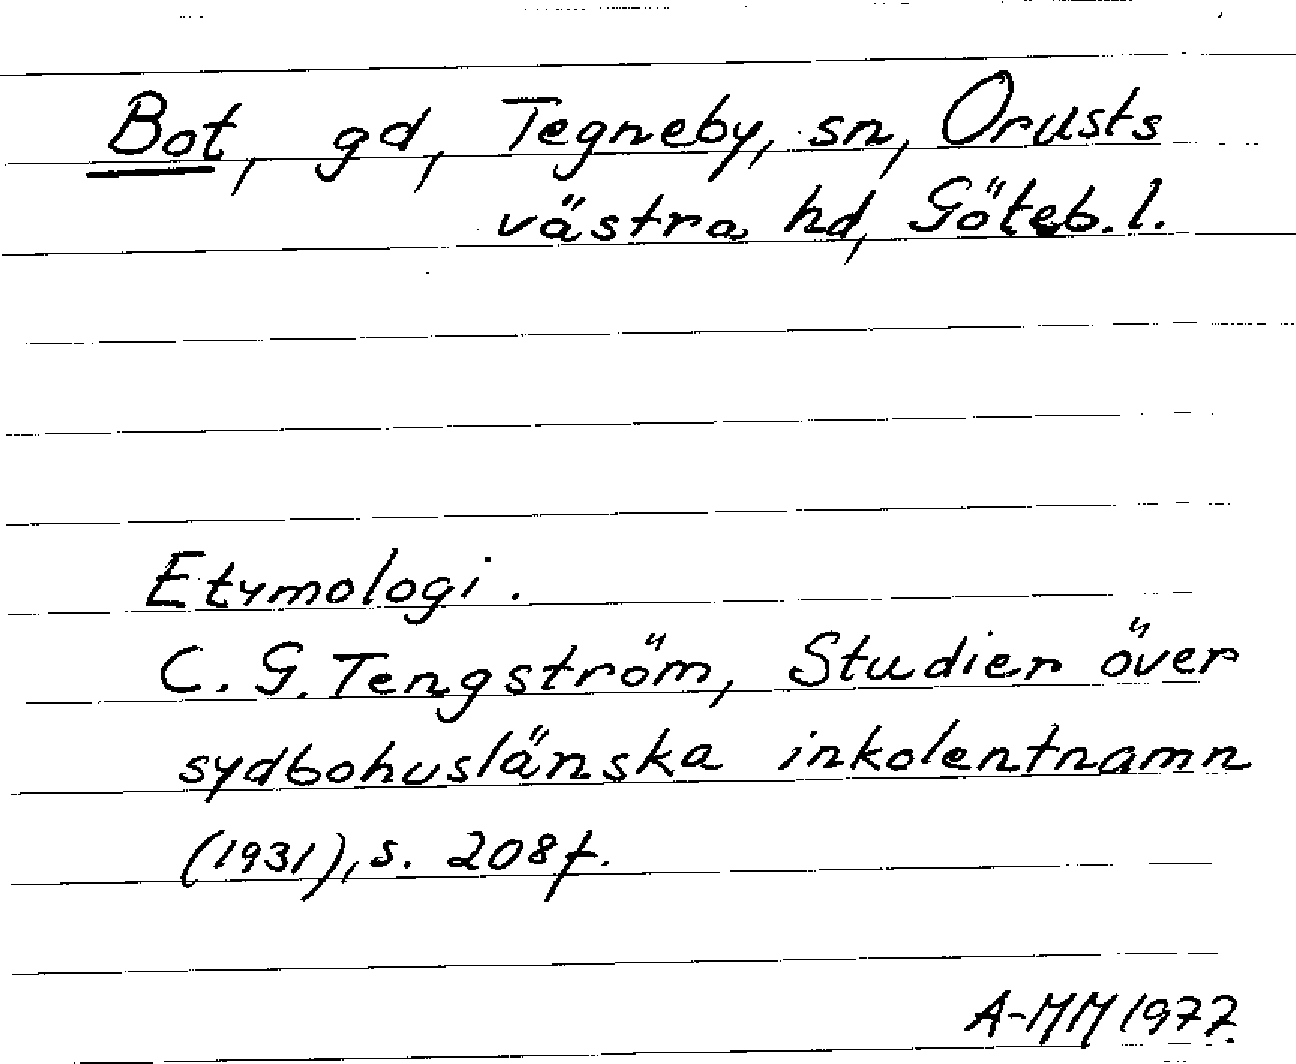 Bot, gd, Tegneby, sn, Orusts
västra hd, Göteb. l.
Etymologi.
C. G. Tengström, Studier över
sydbohuslänska inkolentnamn
(1931), s. 208 f.
A-MM 1977.